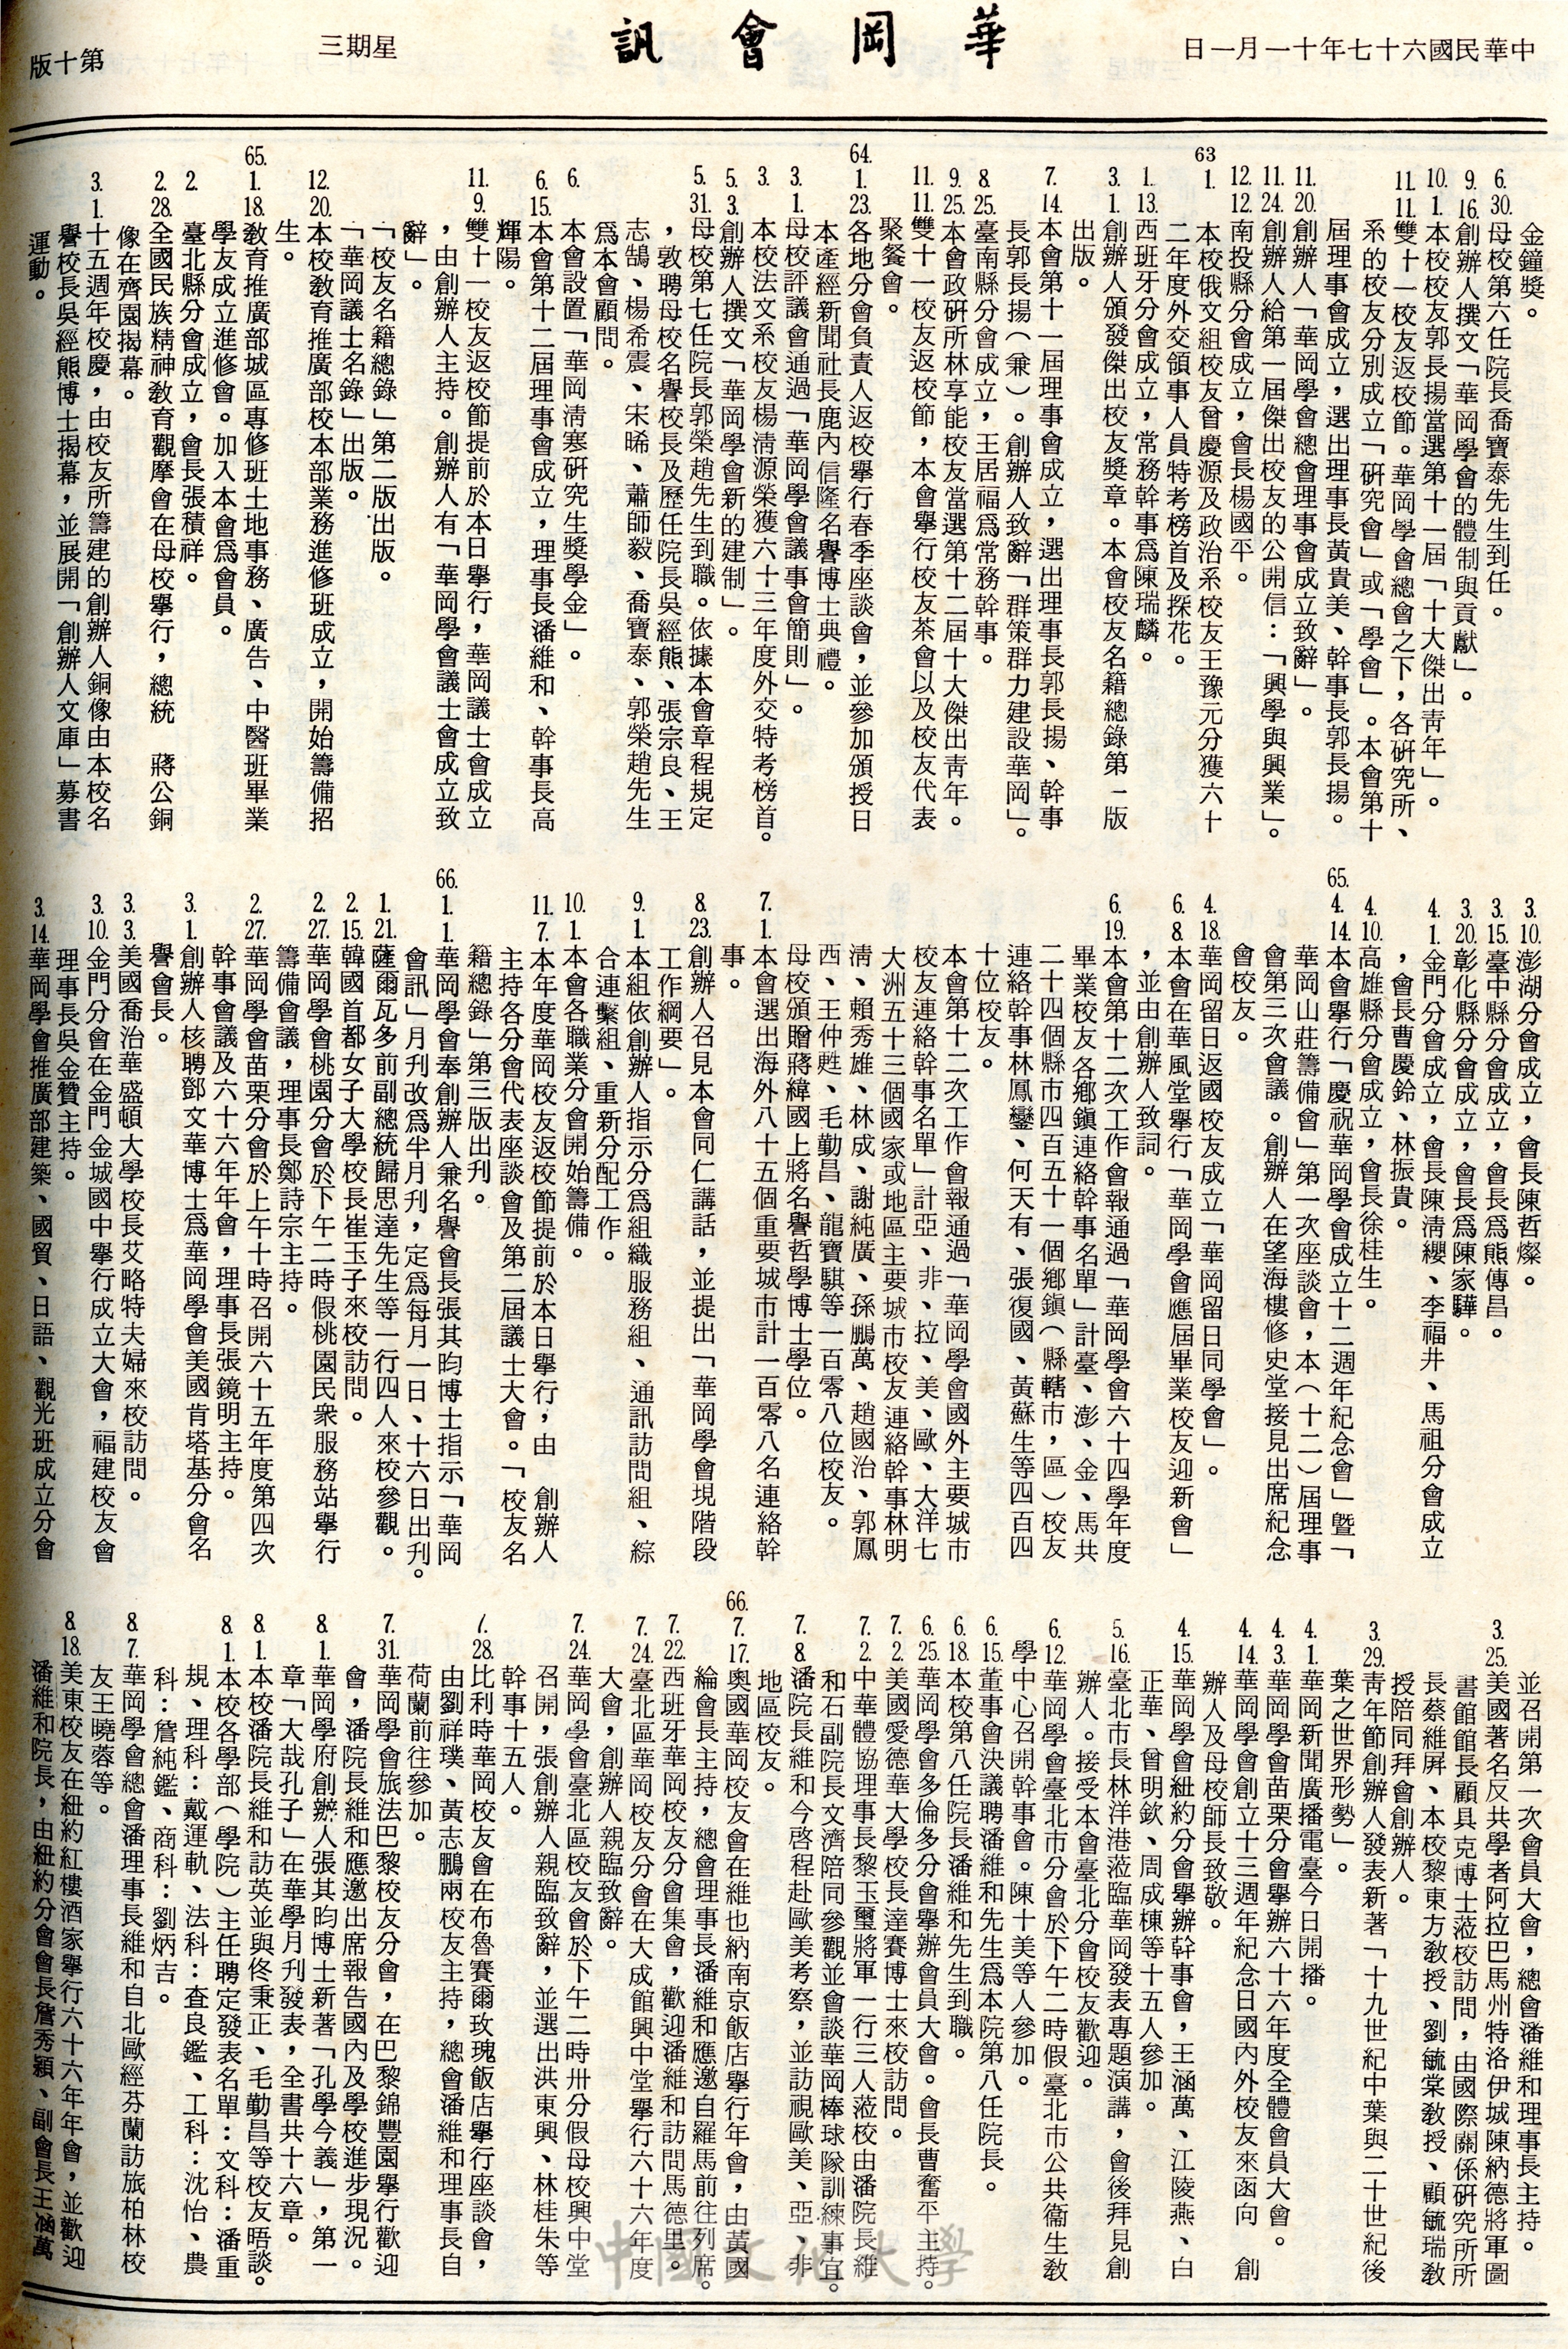 中華民國六十七年十一月一日
華岡會訊
星期三
第十版
金鐘獎。
6.30.母校第六任院長喬寶泰先生到任。
9.16.創辦人撰文「華岡學會的體制與貢獻」。
10.1.本校校友郭長揚當選第十一屆「十大傑出靑年」。
11.11.雙十一校友返校節。華岡學會總會之下，各硏究所、
系的校友分別成立「硏究會」或「學會」。本會第十
屆理事會成立，選出理事長黃貴美、幹事長郭長揚。
11.20.創辦人「華岡學會總會理事會成立致辭」。
11.24.創辦人給第一屆傑出校友的公開信：「興學與興業」。
12.12.南投縣分會成立，會長楊國平。
63 1.本校俄文組校友曾慶源及政治系校友王豫元分獲六十
二年度外交領事人員特考榜首及探花。
1.13.西班牙分會成立，常務幹事爲陳瑞麟。
3.1.創辦人頒發傑出校友獎章。本會校友名籍總錄第一版
出版。
7.14.本會第十一屆理事會成立，選出理事長郭長揚、幹事
長郭長揚（兼）。創辦人致辭「群策群力建設華岡」。
8.25.臺南縣分會成立，王居福爲常務幹事。
9.25.本會政硏所林享能校友當選第十二屆十大傑出靑年。
11.11.雙十一校友返校節，本會舉行校友茶會以及校友代表
聚餐會。
64.1.23.各地分會負責人返校舉行春季座談會，並參加頒授日
本產經新聞社長鹿內信隆名譽博士典禮。
3.1.母校評議會通過「華岡學會議事會簡則」。
3.本校法文系校友楊淸源榮獲六十三年度外交特考榜首。
5.3.創辦人撰文「華岡學會新的建制」。
5.31.母校第七任院長郭榮趙先生到職。依據本會章程規定
，敦聘母校名譽校長及歷任院長吳經熊、張宗良、王
志鵠、楊希震、宋晞、蕭師毅、喬寶泰、郭榮趙先生
爲本會顧問。
6.本會設置「華岡淸寒硏究生獎學金」。
6.15.本會第十二屆理事會成立，理事長潘維和、幹事長高
輝陽。
11.9.雙十一校友返校節提前於本日舉行，華岡議士會成立
，由創辦人主持。創辦人有「華岡學會議士會成立致
辭」。
「校友名籍總錄」第二版出版。
「華岡議士名錄」出版。
12.20.本校敎育推廣部校本部業務進修班成立，開始籌備招
生。
65.1.18.敎育推廣部城區專修班土地事務、廣告、中醫班畢業
學友成立進修會。加入本會爲會員。
2.臺北縣分會成立，會長張積祥。
2.28.全國民族精神敎育觀摩會在母校舉行，總統　蔣公銅
像在齊園揭幕。
3.1.十五週年校慶，由校友所籌建的創辦人銅像由本校名
譽校長吳經熊博士揭幕，並展開「創辦人文庫」募書
運動。
3.10.澎湖分會成立，會長陳哲燦。
3.15.臺中縣分會成立，會長爲熊傳昌。
3.20.彰化縣分會成立，會長爲陳家驊。
4.1.金門分會成立，會長陳淸纓、李福井、馬祖分會成立
，會長曹慶鈴、林振貴。
4.10.高雄縣分會成立，會長徐桂生。
65.4.14.本會舉行「慶祝華岡學會成立十二週年紀念會」暨「
華岡山莊籌備會」第一次座談會，本（十二）屆理事
會第三次會議。創辦人在望海樓修史堂接見出席紀念
會校友。
4.18.華岡留日返國校友成立「華岡留日同學會」。
6.8.本會在華風堂舉行「華岡學會應屆畢業校友迎新會」
，並由創辦人致詞。
6.19.本會第十二次工作會報通過「華岡學會六十四學年度
畢業校友各鄉鎭連絡幹事名單」計臺、澎、金、馬共
二十四個縣市四百五十一個鄉鎭（縣轄市，區）校友
連絡幹事林鳳鑾、何天有、張復國、黃蘇生等四百四
十位校友。
本會第十二次工作會報通過「華岡學會國外主要城市
校友連絡幹事名單」計亞、非、拉、美、歐、大洋七
大洲五十三個國家或地區主要城市校友連絡幹事林明
淸、賴秀雄、林成、謝純廣、孫鵬萬、趙國治、郭鳳
西、王仲甦、毛勤昌、龍寶騏等一百零八位校友。
母校頒贈蔣緯國上將名譽哲學博士學位。
7.1.本會選出海外八十五個重要城市計一百零八名連絡幹
事。
8.23.創辦人召見本會同仁講話，並提出「華岡學會現階段
工作綱要」。
9.1.本組依創辦人指示分爲組織服務組、通訊訪問組、綜
合連繫組、重新分配工作。
10.1.本會各職業分會開始籌備。
11.7.本年度華岡校友返校節提前於本日舉行，由　創辦人
主持各分會代表座談會及第二屆議士大會。「校友名
籍總錄」第三版出刊。
66.1.1.華岡學會奉創辦人兼名譽會長張其昀博士指示「華岡
會訊」月刊改爲半月刊，定爲每月一日、十六日出刊。
1.21.薩爾瓦多前副總統歸思達先生等一行四人來校參觀。
2.15.韓國首都女子大學校長崔玉子來校訪問。
2.27.華岡學會桃園分會於下午二時假桃園民衆服務站舉行
籌備會議，理事長鄭詩宗主持。
2.27.華岡學會苗栗分會於上午十時召開六十五年度第四次
幹事會議及六十六年年會，理事長張鏡明主持。
3.1.創辦人核聘鄧文華博士爲華岡學會美國肯塔基分會名
譽會長。
3.3.美國喬治華盛頓大學校長艾略特夫婦來校訪問。
3.10.金門分會在金門金城國中舉行成立大會，福建校友會
理事長吳金贊主持。
3.14.華岡學會推廣部建築、國貿、日語、觀光班成立分會
並召開第一次會員大會，總會潘維和理事長主持。
3.25.美國著名反共學者阿拉巴馬州特洛伊城陳納德將軍圖
書館館長顧具克博士蒞校訪問，由國際關係硏究所所
長蔡維屏、本校黎東方敎授、劉毓棠敎授、顧毓瑞敎
授陪同拜會創辦人。
3.29.靑年節創辦人發表新著「十九世紀中葉與二十世紀後
葉之世界形勢」。
4.1.華岡新聞廣播電臺今日開播。
4.3.華岡學會苗栗分會舉辦六十六年度全體會員大會。
4.14.華岡學會創立十三週年紀念日國內外校友來函向　創
辦人及母校師長致敬。
4.15.華岡學會紐約分會舉辦幹事會，王涵萬、江陵燕、白
正華、曾明欽、周成棟等十五人參加。
5.16.臺北市長林洋港蒞臨華岡發表專題演講，會後拜見創
辦人。接受本會臺北分會校友歡迎。
6.12.華岡學會臺北市分會於下午二時假臺北市公共衞生敎
學中心召開幹事會。陳十美等人參加。
6.15.董事會決議聘潘維和先生爲本院第八任院長。
6.18.本校第八任院長潘維和先生到職。
6.25.華岡學會多倫多分會舉辦會員大會。會長曹奮平主持。
7.2.美國愛德華大學校長達賽博士來校訪問。
7.2.中華體協理事長黎玉璽將軍一行三人蒞校由潘院長維
和石副院長文濟陪同參觀並會談華岡棒球隊訓練事宜。
7.8.潘院長維和今啓程赴歐美考察，並訪視歐美、亞、非
地區校友。
66.7.17.奧國華岡校友會在維也納南京飯店舉行年會，由黃國
綸會長主持，總會理事長潘維和應邀自羅馬前往列席。
7.22.西班牙華岡校友分會集會，歡迎潘維和訪問馬德里。
7.24.臺北區華岡校友分會在大成館興中堂舉行六十六年度
大會，創辦人親臨致辭。
7.24.華岡學會臺北區校友會於下午二時卅分假母校興中堂
召開，張創辦人親臨致辭，並選出洪東興、林桂朱等
幹事十五人。
7.28.比利時華岡校友會在布魯賽爾玫瑰飯店舉行座談會，
由劉祥璞、黃志鵬兩校友主持，總會潘維和理事長自
荷蘭前往參加。
7.31.華岡學會旅法巴黎校友分會，在巴黎錦豐園舉行歡迎
會，潘院長維和應邀出席報告國內及學校進步現況。
8.1.華岡學府創辦人張其昀博士新著「孔學今義」，第一
章「大哉孔子」在華學月刊發表，全書共十六章。
8.1.本校潘院長維和訪英並與佟秉正、毛勤昌等校友晤談。
8.1.本校各學部（學院）主任聘定發表名單：文科：潘重
規、理科：戴運軌、法科：査良鑑、工科：沈怡、農
科：詹純鑑、商科：劉炳吉。
8.7.華岡學會總會潘理事長維和自北歐經芬蘭訪旅柏林校
友王曉蓉等。
8.18.美東校友在紐約紅樓酒家舉行六十六年年會，並歡迎
潘維和院長，由紐約分會會長詹秀穎、副會長王涵萬
中國文化大學